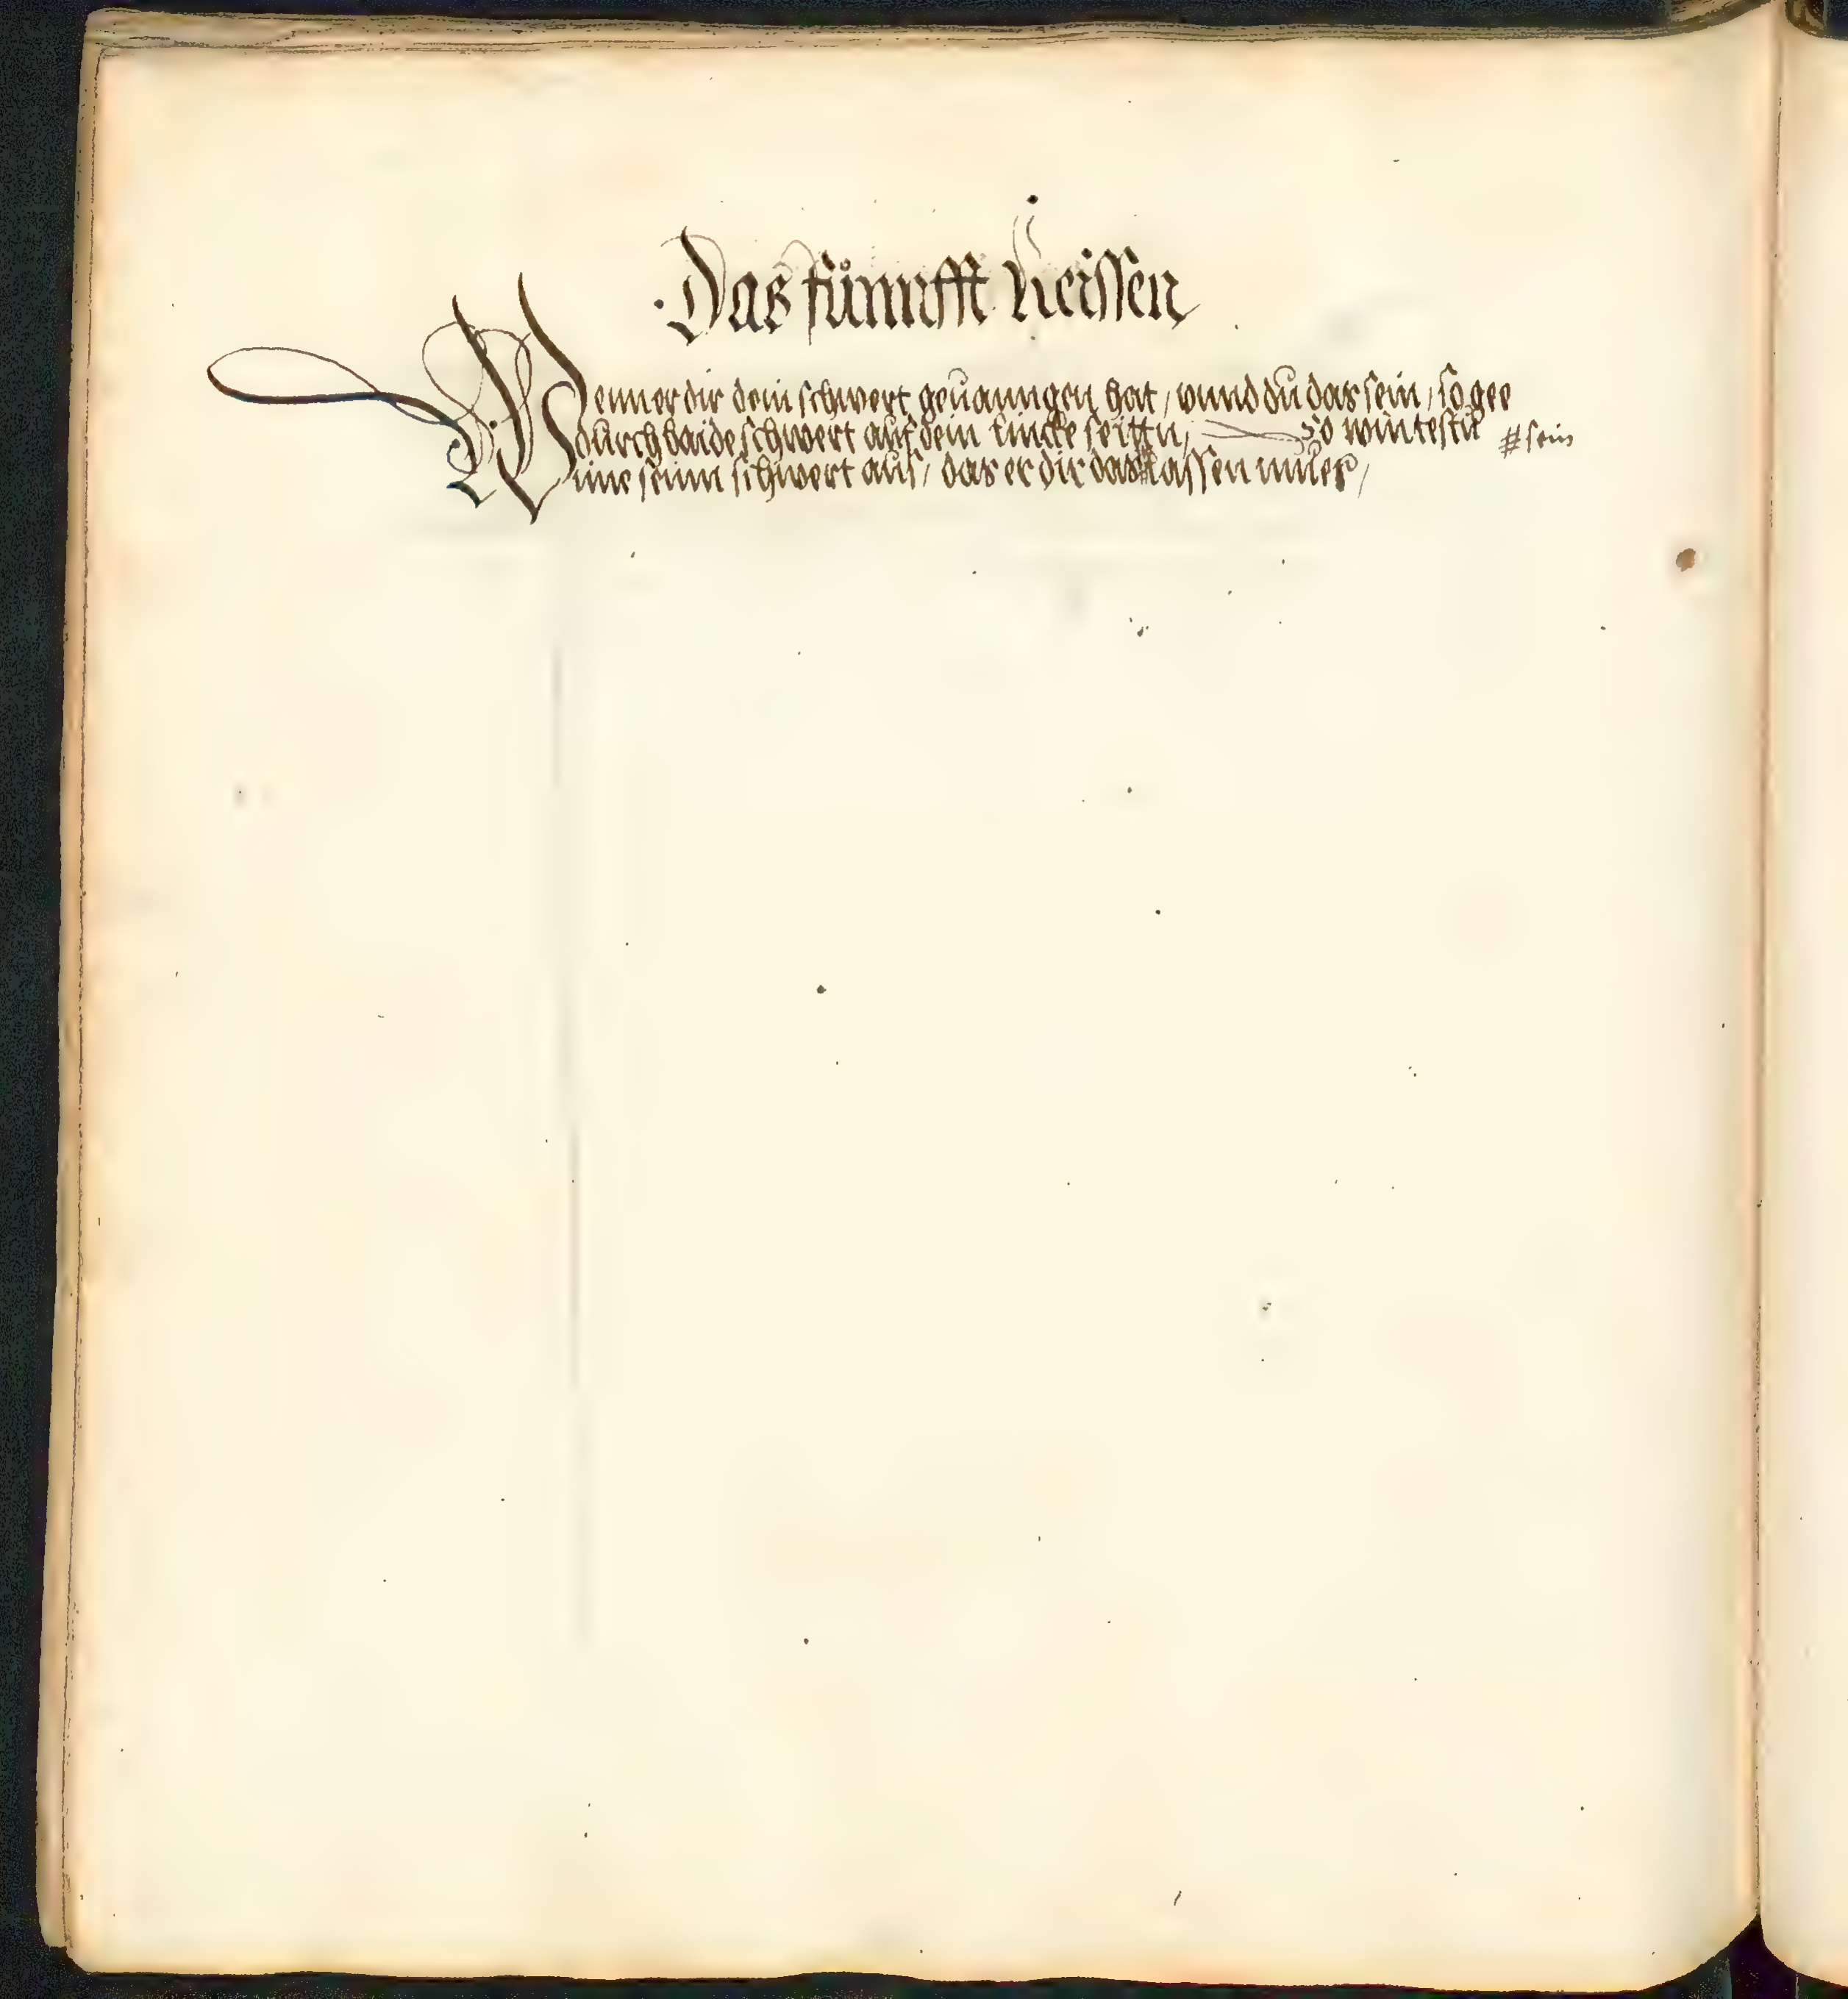 Das fünnfft Reissen
Wenn er dir dein schwert geüanngen hat / vnnd dü das sein / so gee
dürch baide schwert auf dein linncke seittn / So wintestü # sein
ime seinn schwert aus / das er dir das # lassen mües /